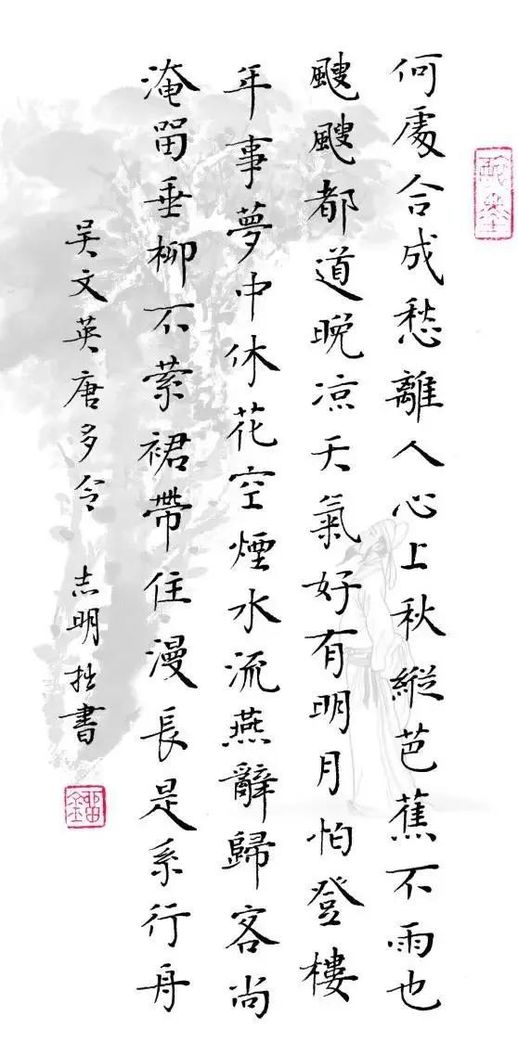 何處合成愁離人心上秋縱芭蕉不雨也
颼颼都道晚凉天氣好有明月怕登樓
年事夢中休花空煙水流燕辭歸客尚
淹留垂柳不萦裙帶住漫長是系行舟
吴文英唐多令 志明拙書